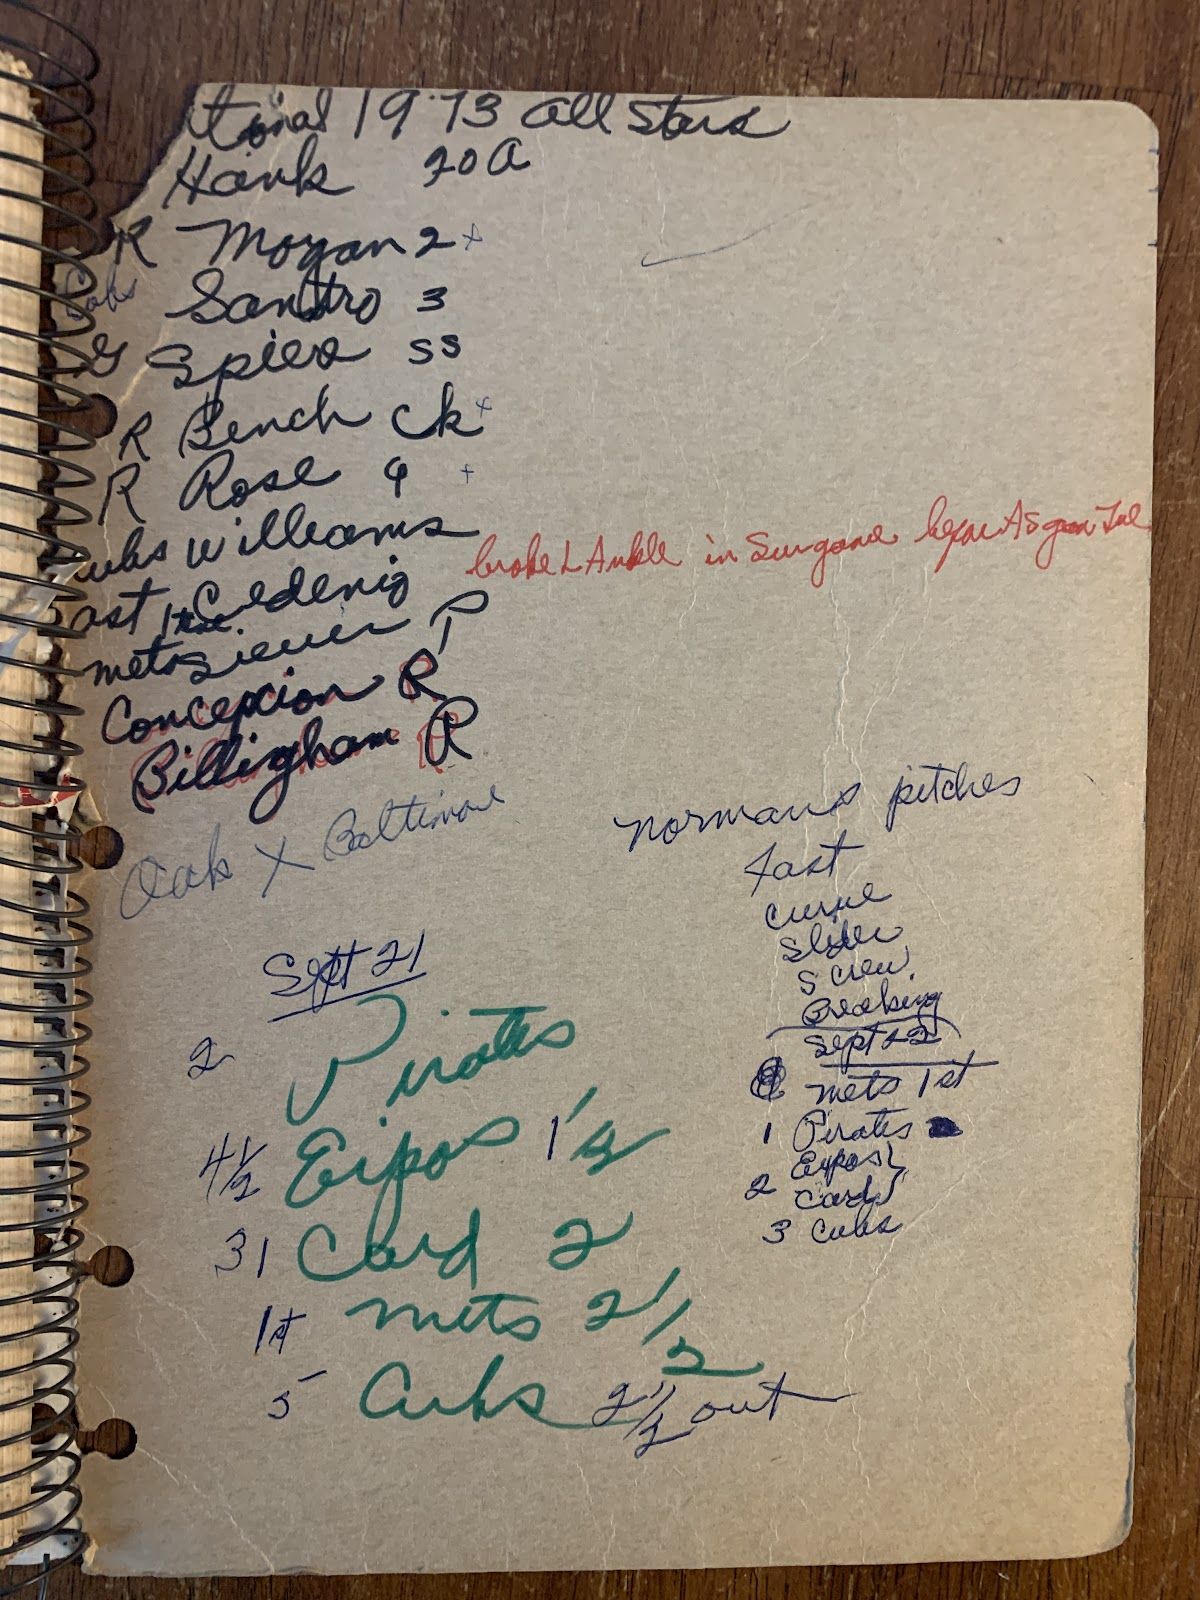 tional 1973 all Stars
Hank 20 A
R Morgan 2 x
Cubs Santro 3
G Spier SS
R Bench Ck x
R Rose 9 +
ubs Williams
broke L Ankle in Sun game before AS game Tue
ast Cedenio
mets Siever P
Concepcion R
Billingham R
Oak X Baltimore
Normans pitches
fast
curve
slider
screw
Breaking
Sept 21
2 Pirates
4 1/2 Expos 1 1/2
31 Card 2
1st mets 2 1/2
5 Cubs 2 1/2 out
Sept 22
mets 1st
1 Pirates
2 Expos }
Card }
3 Cubs